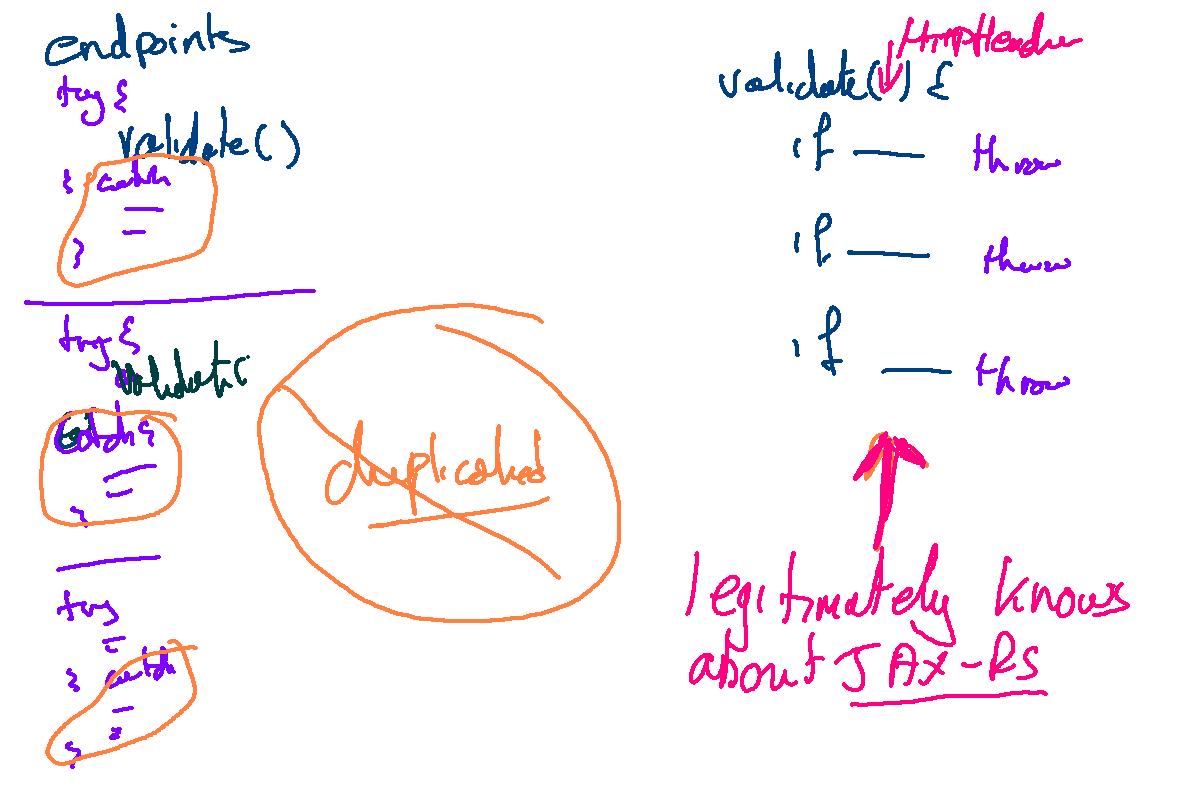 endpoints
try {
validate()
} catch
}
try {
validate(
catch {
}
try
} catch
}
duplicated
HttpHeader
validate() {
if throw
if throw
if throw
legitimately knows
about JAX-RS